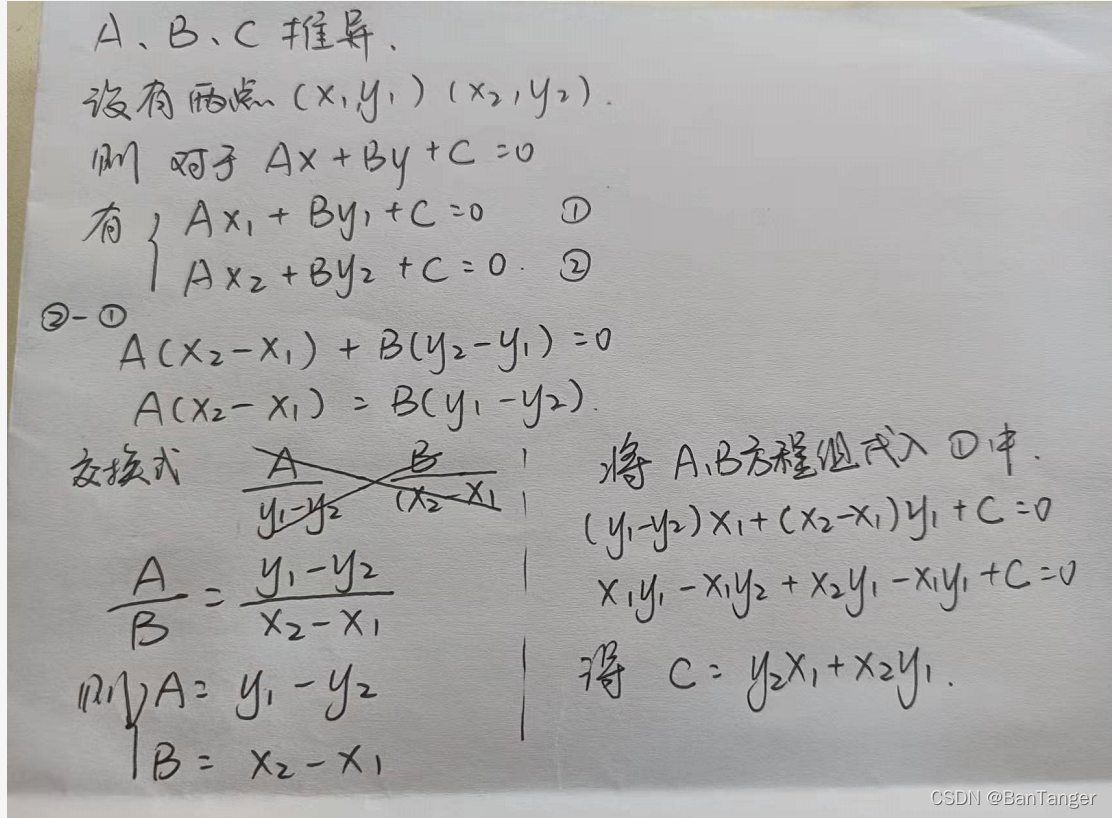 A、B、C 推导.
设有两点 (x₁,y₁) (x₂,y₂).
则 对于 Ax+By+C=0
有 { Ax₁+By₁+C=0 ①
Ax₂+By₂+C=0. ②
②-①
A(x₂-x₁)+B(y₂-y₁)=0
A(x₂-x₁)=B(y₁-y₂).
交换式 A/(y₁-y₂) B/(x₂-x₁
A/B = (y₁-y₂)/(x₂-x₁)
则 { A= y₁-y₂
B= x₂-x₁
将 A、B方程组代入 ①中.
(y₁-y₂)x₁+(x₂-x₁)y₁+C=0
x₁y₁-x₁y₂+x₂y₁-x₁y₁+C=0
得 C= y₂x₁+x₂y₁.
CSDN @BanTanger